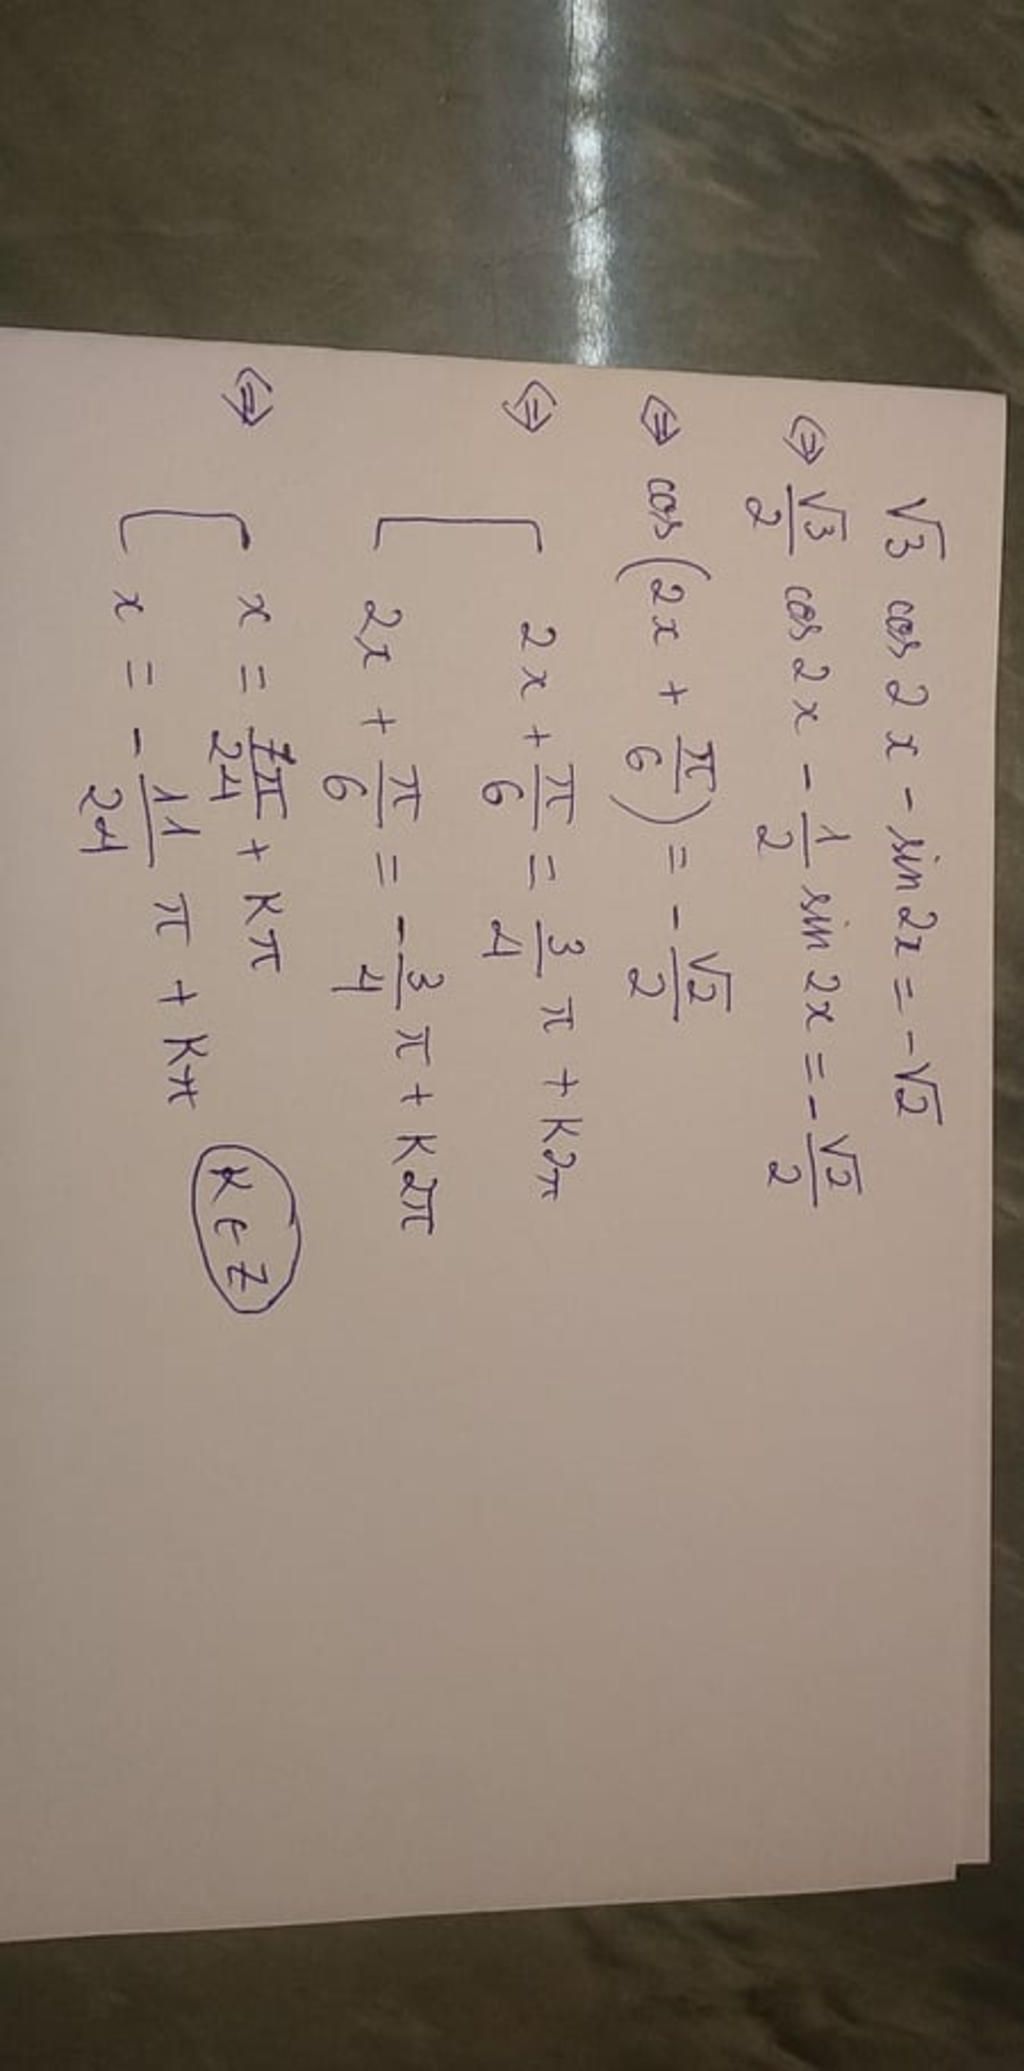 √3 cos 2x - sin 2x = -√2
⇔ √3/2 cos 2x - 1/2 sin 2x = -√2/2
⇔ cos(2x + π/6) = -√2/2
⇔ [ 2x + π/6 = 3/4 π + k2π
2x + π/6 = -3/4 π + k2π
⇔ [ x = 7π/24 + kπ
x = -11/24 π + kπ
k ∈ Z